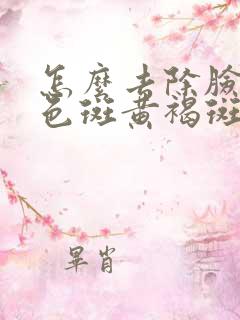 怎麼去除臉
色斑黃褐斑
畢肯